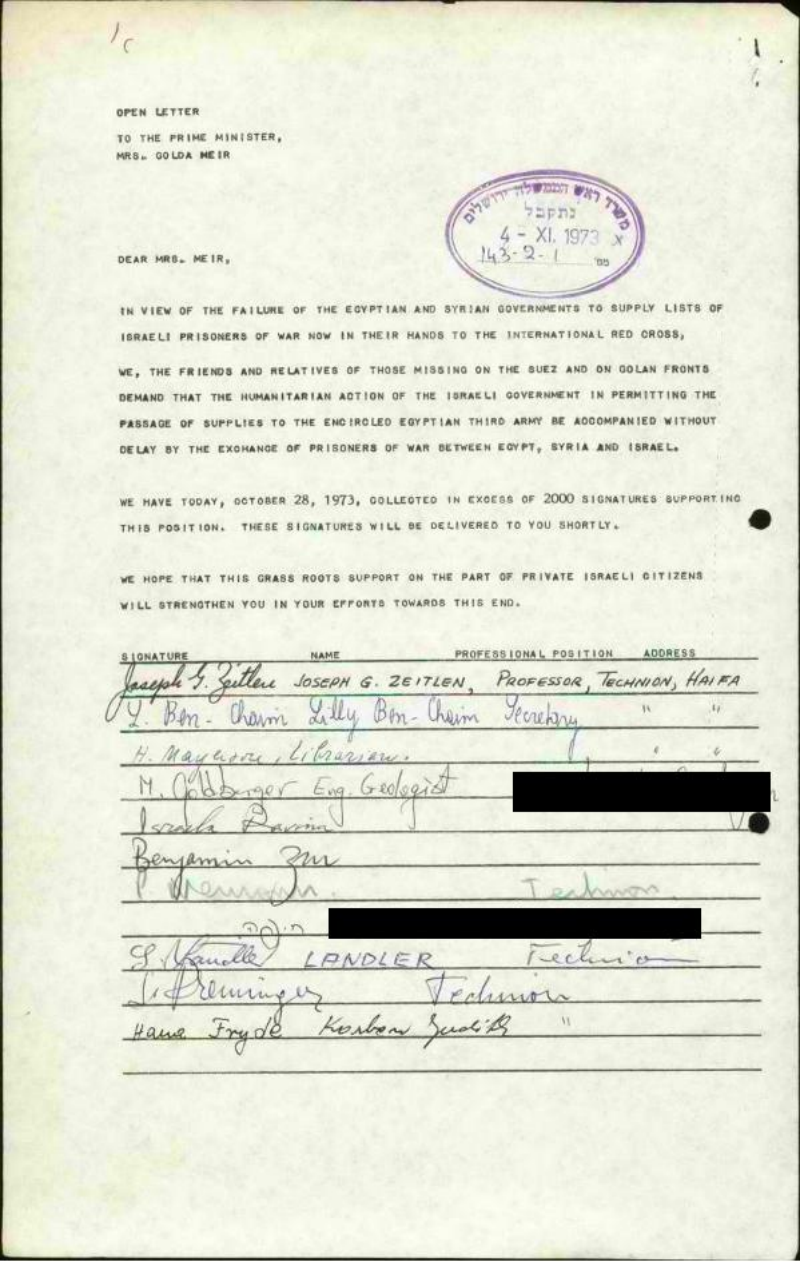 OPEN LETTER
TO THE PRIME MINISTER,
MRS. GOLDA MEIR
משרד ראש הממשלה ירושלים
נתקבל
4 - XI. 1973 א
143-2-1 מס'
DEAR MRS. MEIR,
IN VIEW OF THE FAILURE OF THE EGYPTIAN AND SYRIAN GOVERNMENTS TO SUPPLY LISTS OF
ISRAELI PRISONERS OF WAR NOW IN THEIR HANDS TO THE INTERNATIONAL RED CROSS,
WE, THE FRIENDS AND RELATIVES OF THOSE MISSING ON THE SUEZ AND ON GOLAN FRONTS
DEMAND THAT THE HUMANITARIAN ACTION OF THE ISRAELI GOVERNMENT IN PERMITTING THE
PASSAGE OF SUPPLIES TO THE ENCIRCLED EGYPTIAN THIRD ARMY BE ACCOMPANIED WITHOUT
DELAY BY THE EXCHANGE OF PRISONERS OF WAR BETWEEN EGYPT, SYRIA AND ISRAEL.
WE HAVE TODAY, OCTOBER 28, 1973, COLLECTED IN EXCESS OF 2000 SIGNATURES SUPPORTING
THIS POSITION. THESE SIGNATURES WILL BE DELIVERED TO YOU SHORTLY.
WE HOPE THAT THIS GRASS ROOTS SUPPORT ON THE PART OF PRIVATE ISRAELI CITIZENS
WILL STRENGTHEN YOU IN YOUR EFFORTS TOWARDS THIS END.
SIGNATURE NAME PROFESSIONAL POSITION ADDRESS
Joseph G. Zeitlen JOSEPH G. ZEITLEN, PROFESSOR, TECHNION, HAIFA
L. Ben-Chaim Lilly Ben-Chaim Secretary " "
H. Librarian. " "
M. Goldberger Eng. Geologist
Israela
Benjamin Zur
P. Technion
חיפה
S. Landler LANDLER Technion
Technion
Hana Fryde Korban Judith "